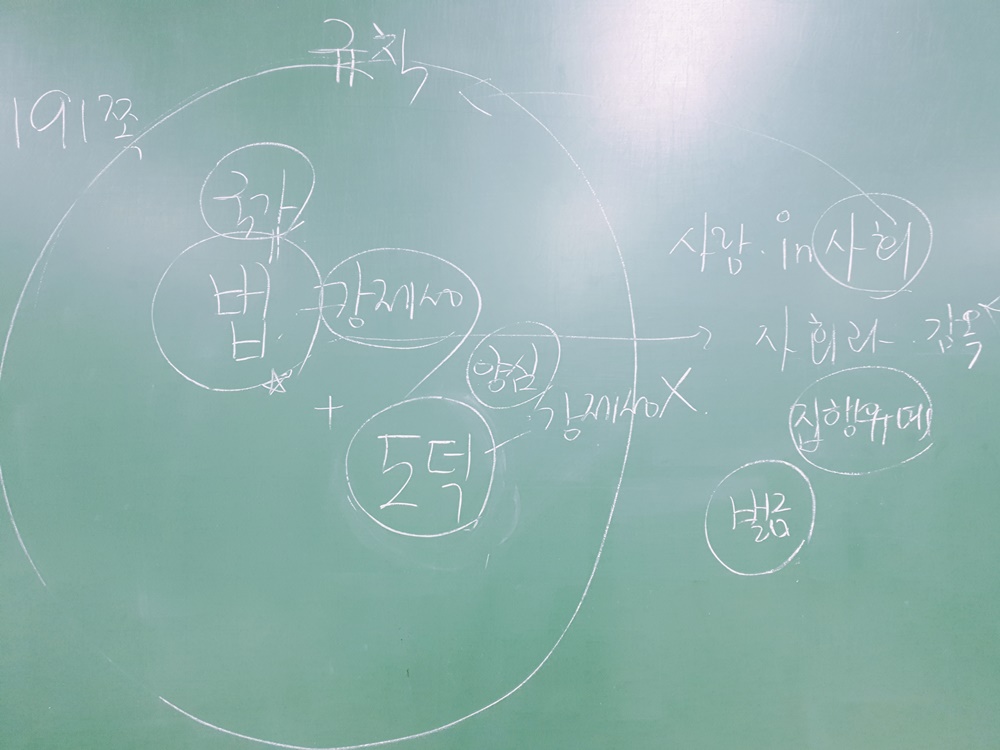 규칙
191쪽
국가
법
강제성
사람. in 사회
사회와 감옥X
양심
강제성X
집행유예
+
도덕
벌금